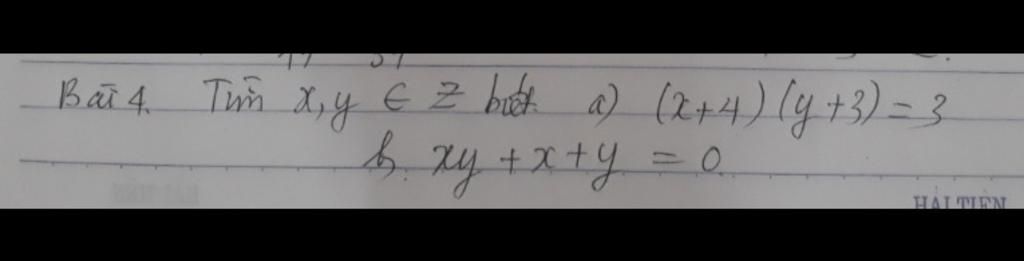 Bài 4. Tìm x, y ∈ Z biết a) (x+4)(y+3) = 3
b. xy + x + y = 0
HẢI TIẾN